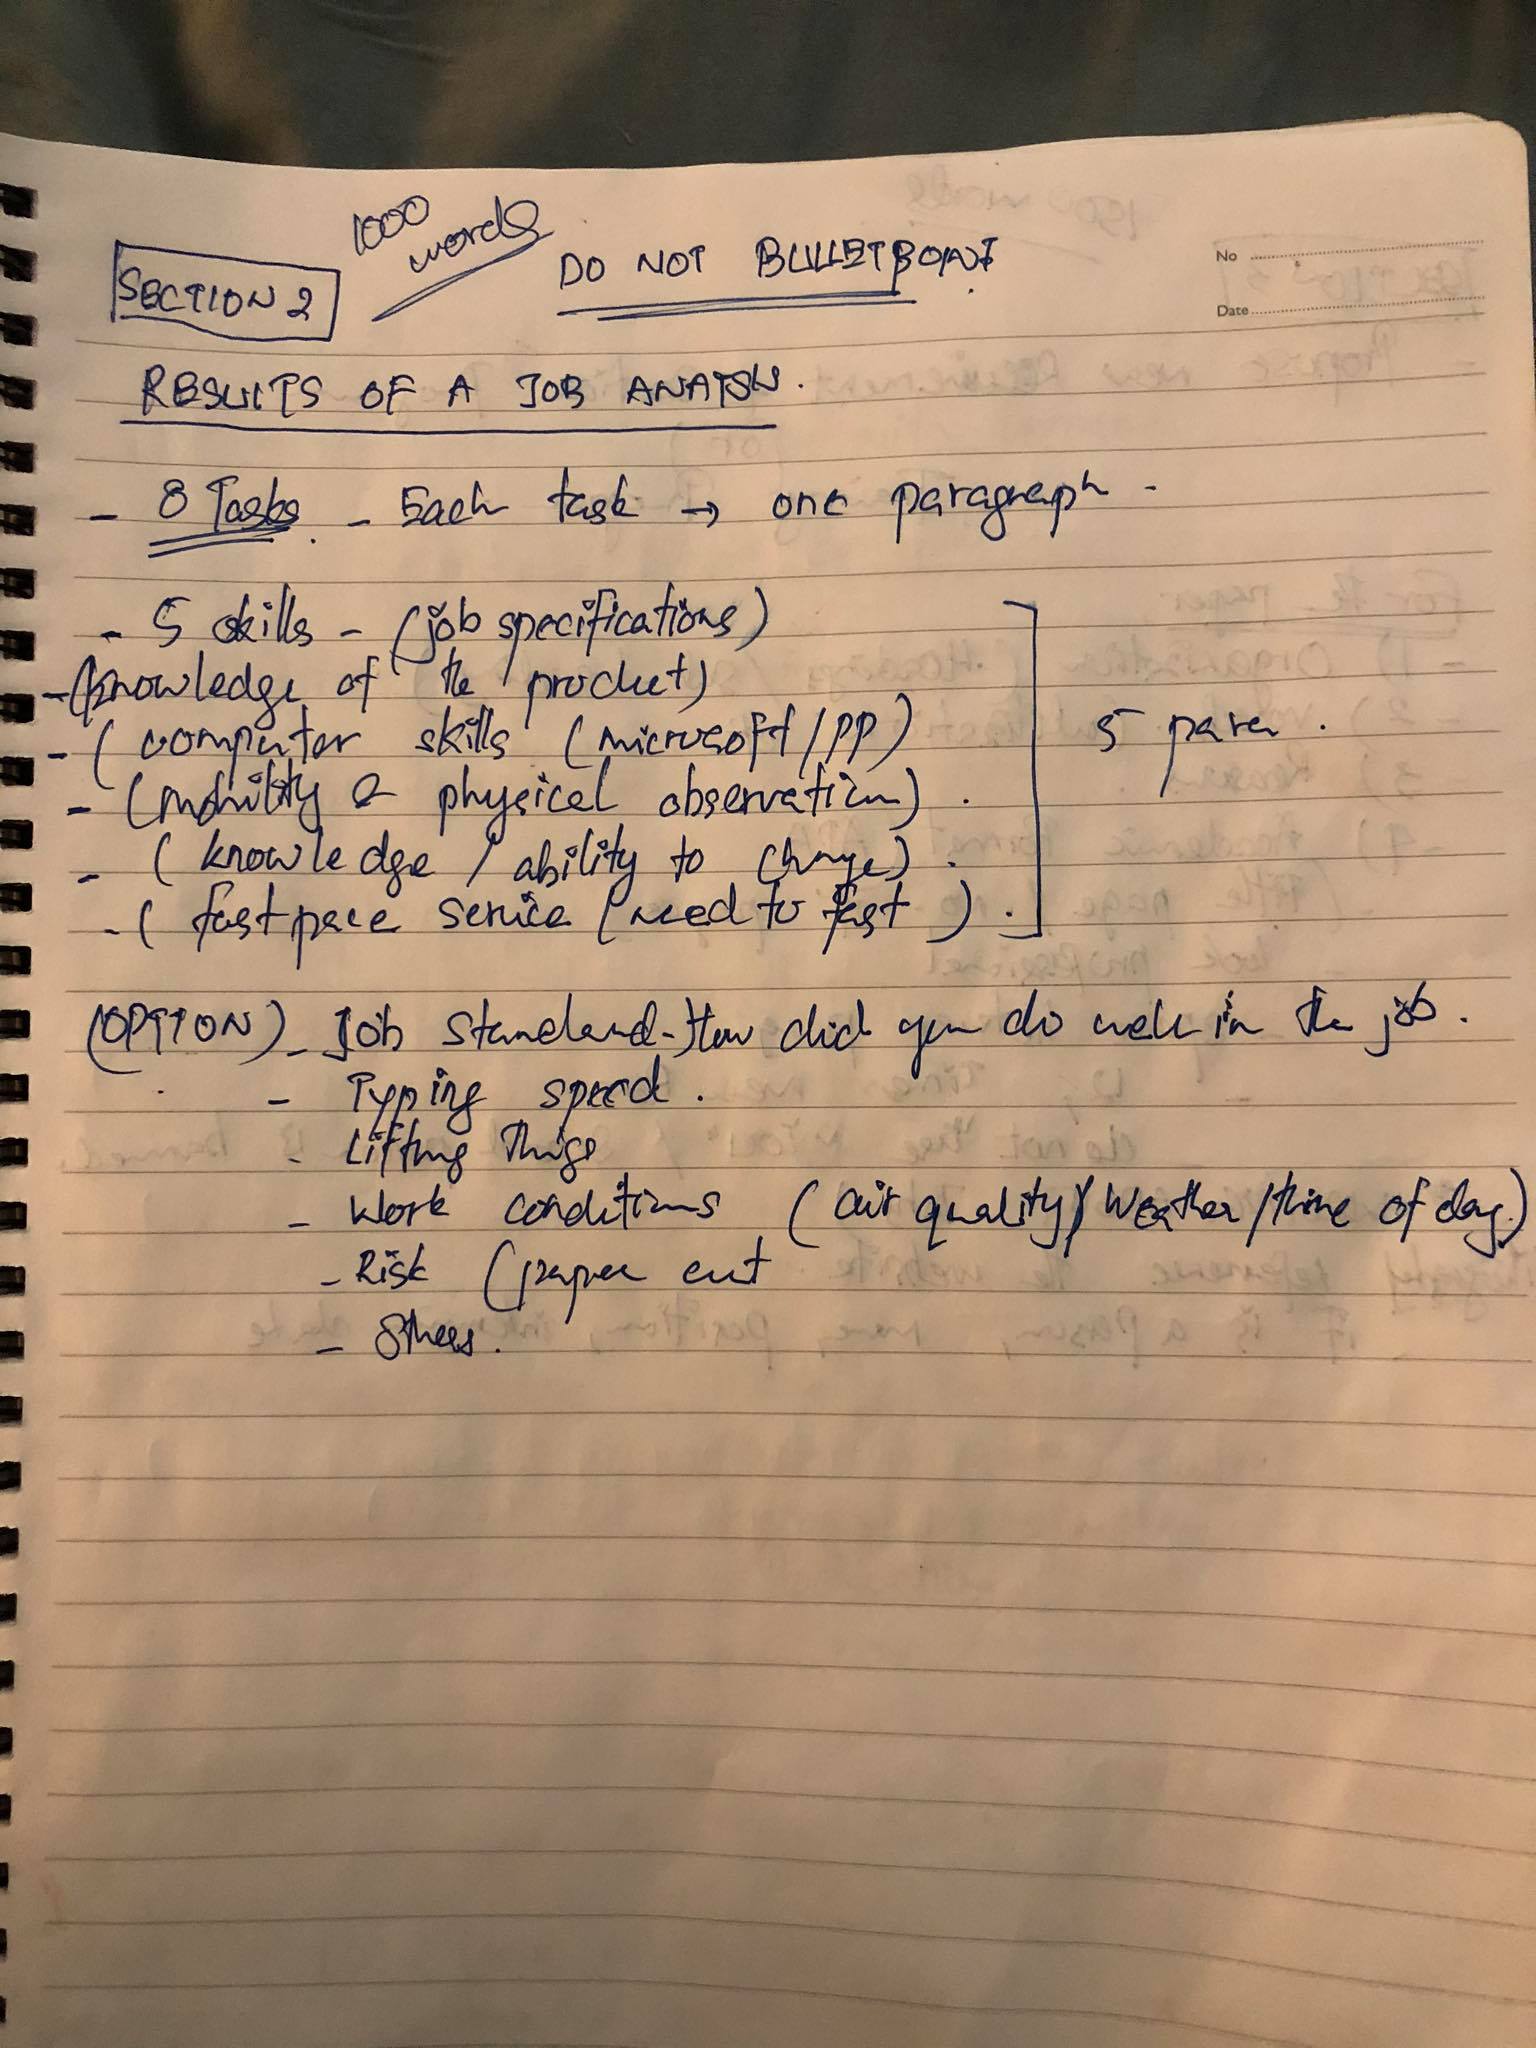 1000 words
SECTION 2
DO NOT BULLETPOINT
No
Date
RESULTS OF A JOB
- 8 Tasks. - Each task → one paragraph -
- 5 skills - (job specifications)
- (knowledge of the product)
- (computer skills (microsoft/PP)
5 para.
- (mobility & physical observation).
- (knowledge / ability to change).
- (fast pace service (need to fast).
(OPTION) - Job Standard - How did you do well in the job.
- Typing speed.
- Lifting things
- Work conditions (air quality/Weather/time of day.)
- Risk (paper cut
- Others.